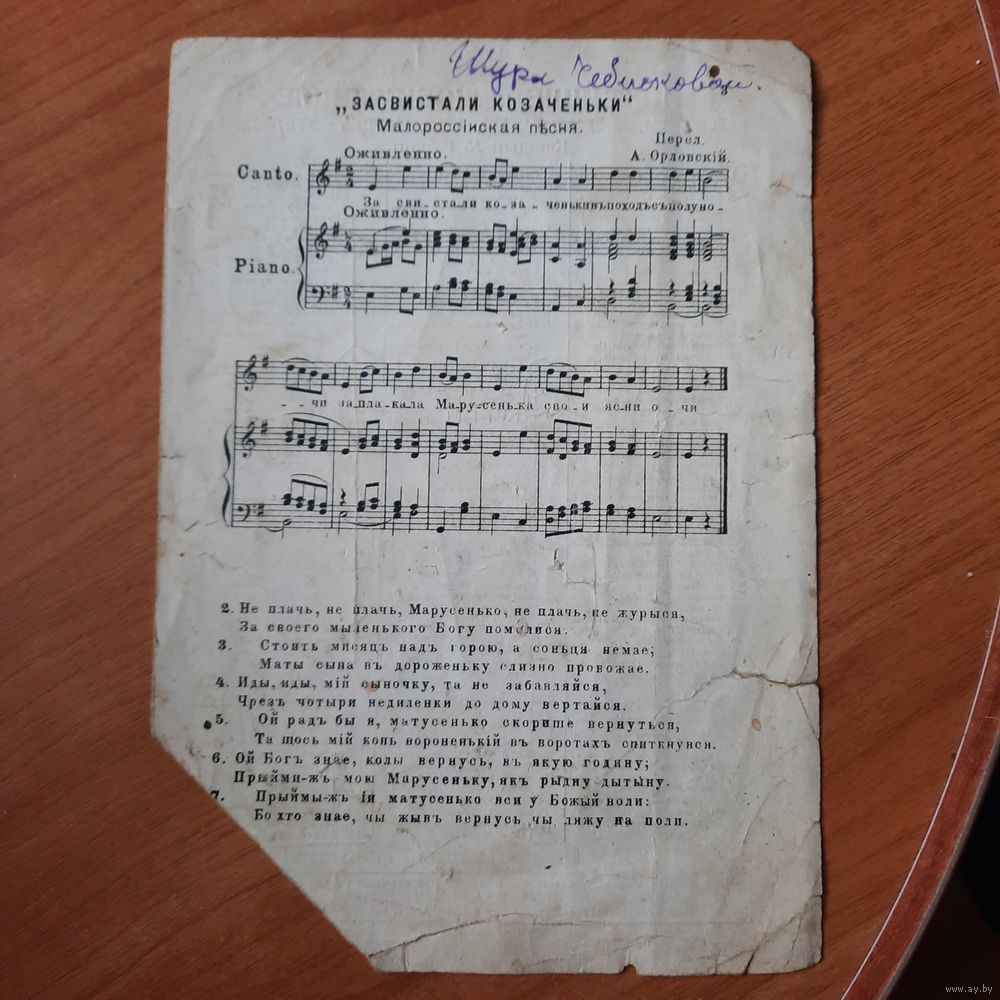 Шура
„ЗАСВИСТАЛИ КОЗАЧЕНЬКИ“
Малороссійская пѣсня.
Перел.
А. Орловскій.
Оживленно.
Canto.
За сви-стали ко-за-ченькивъпоходъсъполуно-
Оживленно.
Piano.
--чи запла-кала Мару-сень-ка сво-и яс-ни о-чи
2. Не плачь, не плачь, Марусенько, не плачь, не журыся,
За своего мыленького Богу помолися.
3. Стоить мисяць надъ горою, а соньця немае;
Маты сына въ дороженьку слизно провожае.
4. Иды, иды, мій сыночку, та не забавляйся,
Чрезъ чотыри недиленки до дому вертайся.
5. Ой радъ бы я, матусенько скорише вернуться,
Та щось мій конь вороненькій въ воротахъ спиткнувся.
6. Ой Богъ знае, колы вернусь, въ якую годину;
Прыйми-жъ мою Марусеньку, якъ рыдну дытыну.
7. Прыймы-жъ іи матусенько вси у Божый воли:
Бо хто знае, чы жывъ вернусь чы ляжу на поли.
www.ay.by